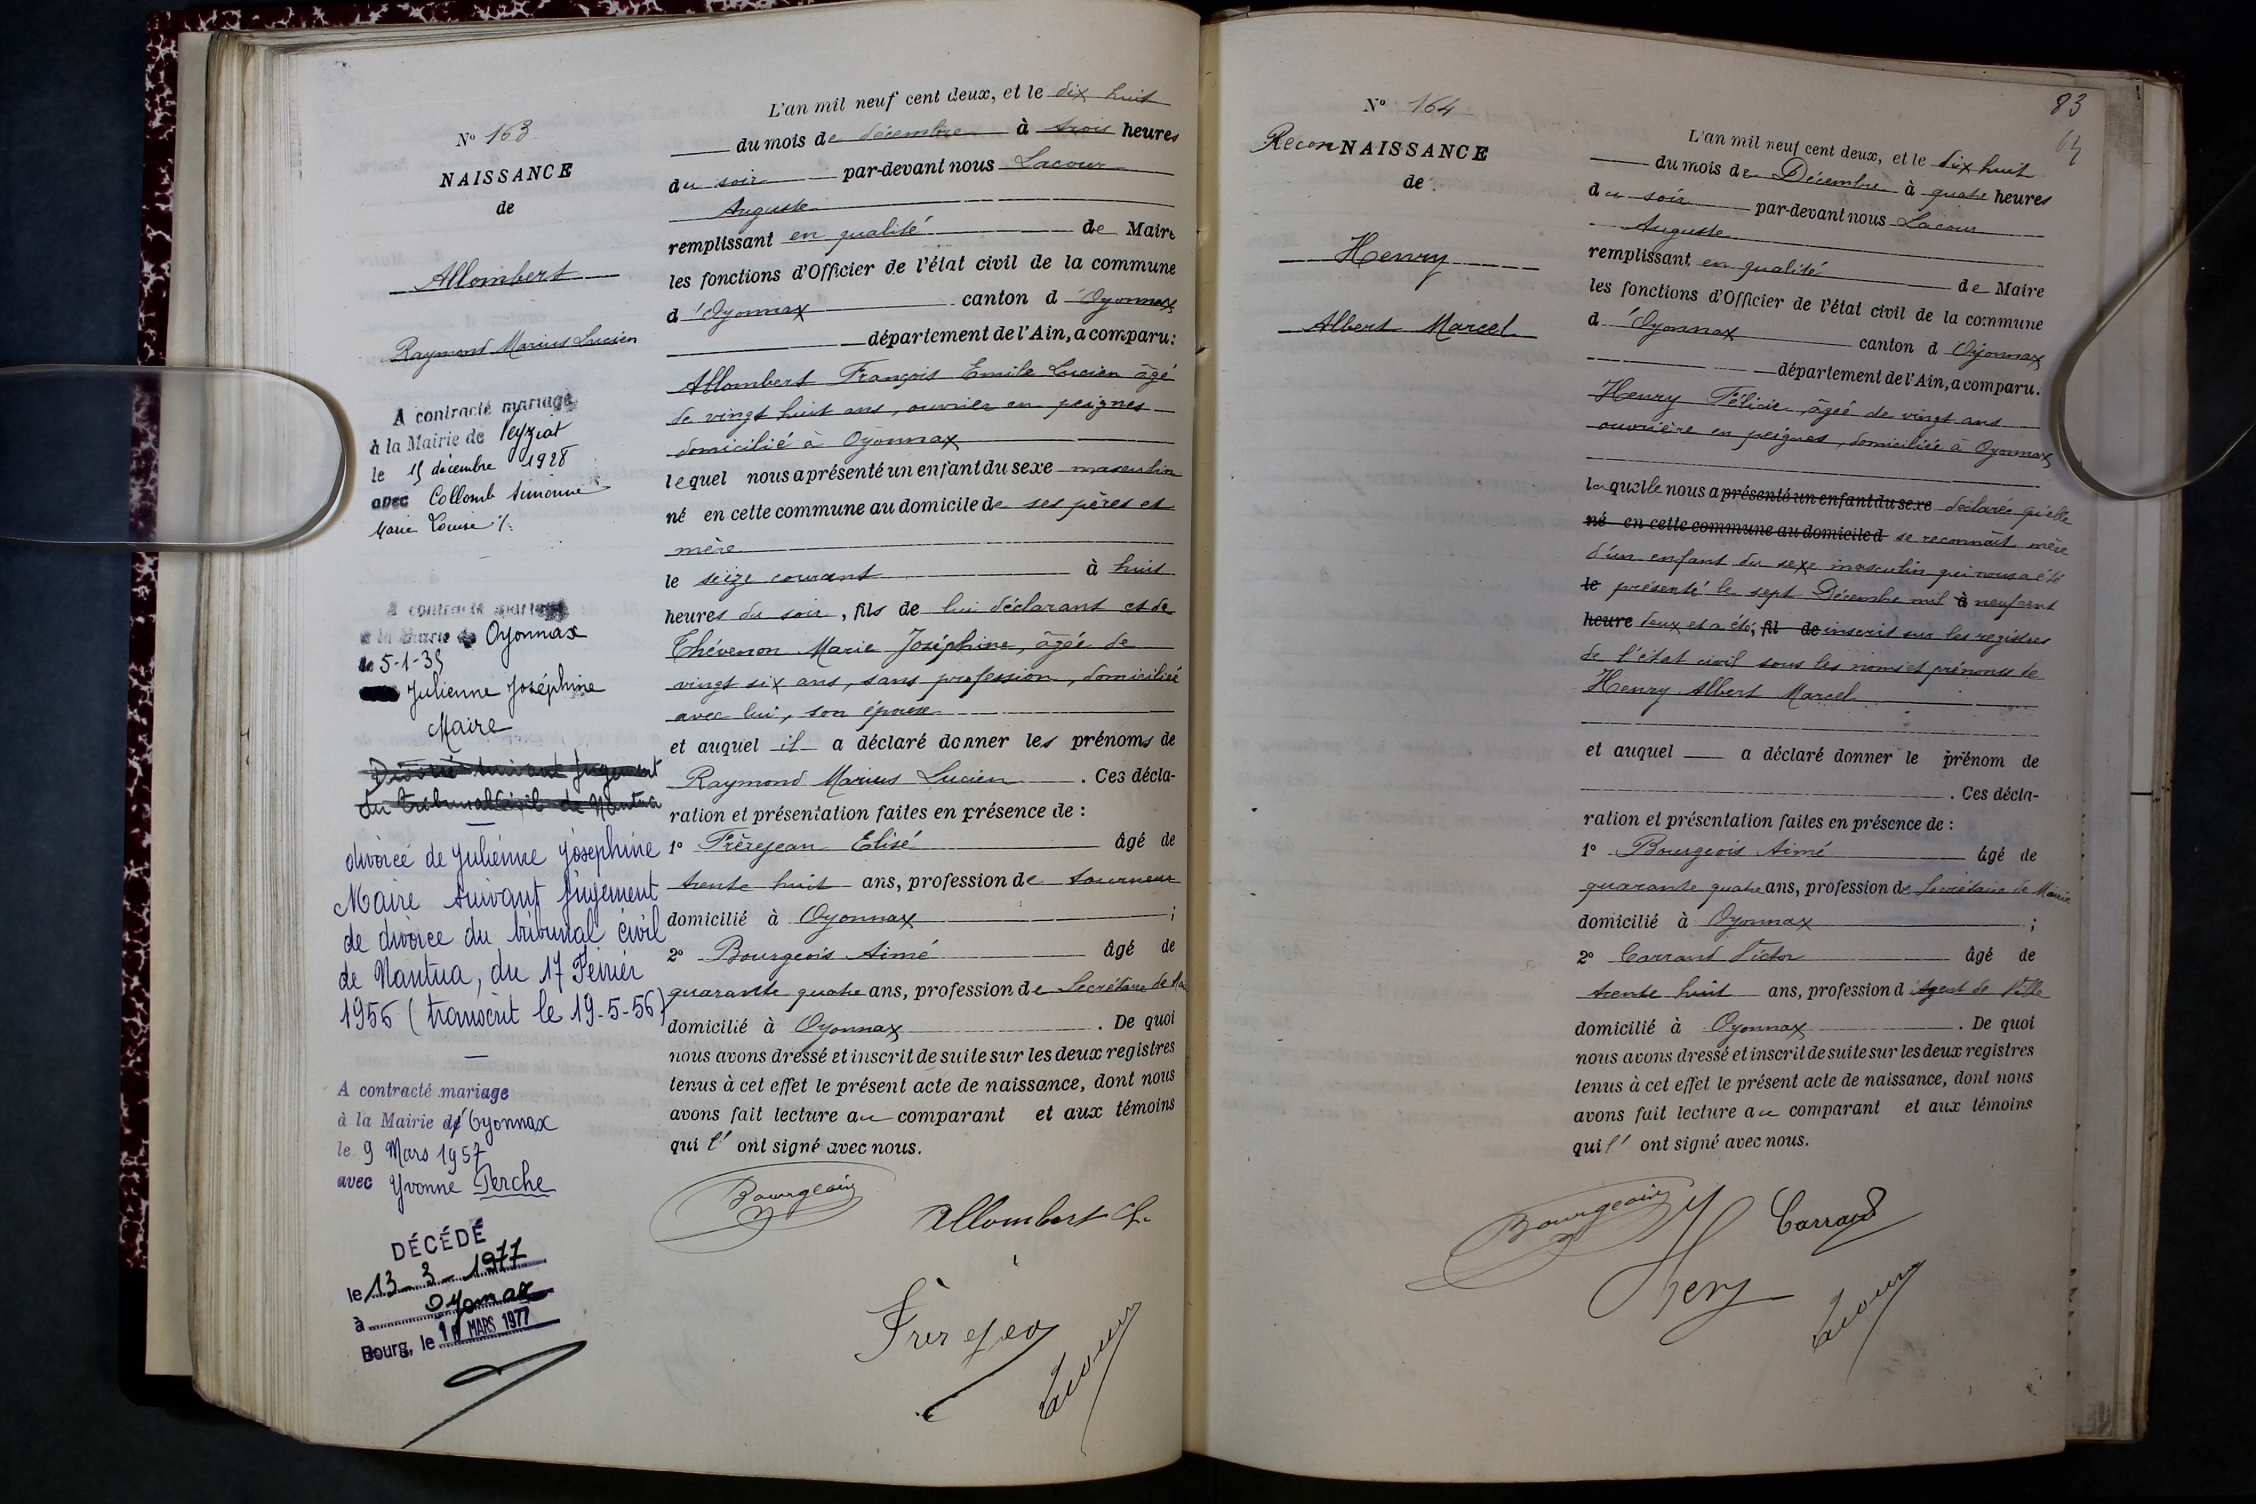 N° 163
NAISSANCE
de
Allombert
Raymond Marius Lucien
A contracté mariage
à la Mairie de Veyziat
le 15 décembre 1928
avec Collomb Simonne
Marie Louise ./.
A contracté mariage
à la Mairie de Oyonnax
le 5-1-35
Julienne Joséphine
Maire
Divorcé suivant jugement
du tribunal civil de Nantua
divorcé de Julienne Joséphine
Maire suivant jugement
de divorce du tribunal civil
de Nantua, du 17 Février
1956 (transcrit le 19-5-56)
A contracté mariage
à la Mairie d'Oyonnax
le 9 Mars 1957
avec Yvonne Perche
DÉCÉDÉ
le 13-3-1977
à Oyonnax
Bourg, le MARS 1977
L'an mil neuf cent deux, et le dix huit
du mois de décembre à trois heures
du soir par-devant nous Lacour
Auguste
remplissant en qualité de Maire
les fonctions d'Officier de l'état civil de la commune
d'Oyonnax canton d'Oyonnax
département de l'Ain, a comparu:
Allombert François Emile Lucien âgé
de vingt huit ans, ouvrier en peignes
domicilié à Oyonnax
lequel nous a présenté un enfant du sexe masculin
né en cette commune au domicile de ses pères et
mère
le seize courant à huit
heures du soir, fils de lui déclarant et de
Thévenon Marie Joséphine, âgée de
vingt six ans, sans profession, domiciliée
avec lui, son épouse
et auquel il a déclaré donner les prénoms de
Raymond Marius Lucien. Ces décla-
ration et présentation faites en présence de :
1° Frèrejean Elisé âgé de
trente huit ans, profession de tourneur
domicilié à Oyonnax ;
2° Bourgeois Aimé âgé de
quarante quatre ans, profession de Secrétaire de
domicilié à Oyonnax. De quoi
nous avons dressé et inscrit de suite sur les deux registres
tenus à cet effet le présent acte de naissance, dont nous
avons fait lecture au comparant et aux témoins
qui l' ont signé avec nous.
Bourgeois
Allombert
Frerejea
Lacour
83
N° 164
ReconNAISSANCE
de
Henry
Albert Marcel
L'an mil neuf cent deux, et le dix huit
du mois de Décembre à quatre heures
du soir par-devant nous Lacour
Auguste
remplissant en qualité de Maire
les fonctions d'Officier de l'état civil de la commune
d'Oyonnax canton d Oyonnax
département de l'Ain, a comparu.
Henry Félicie, âgée de vingt ans
ouvrière en peignes, domiciliée à Oyonnax
laquelle nous a présenté un enfant du sexe déclarée qu'elle
né en cette commune au domicile d se reconnaît mère
d'un enfant du sexe masculin qui nous a été
le présenté le sept Décembre mil à neuf cent
heure deux et a été, fil de inscrit sur les registres
de l'état civil sous les noms et prénoms de
Henry Albert Marcel
et auquel a déclaré donner le prénom de
. Ces décla-
ration et présentation faites en présence de :
1° Bourgeois Aimé âgé de
quarante quatre ans, profession de Secrétaire de Mairie
domicilié à Oyonnax ;
2° Carrand Victor âgé de
trente huit ans, profession d'Agent de Ville
domicilié à Oyonnax. De quoi
nous avons dressé et inscrit de suite sur les deux registres
tenus à cet effet le présent acte de naissance, dont nous
avons fait lecture au comparant et aux témoins
qui l' ont signé avec nous.
Bourgeois
Carrand
Heny
Lacour